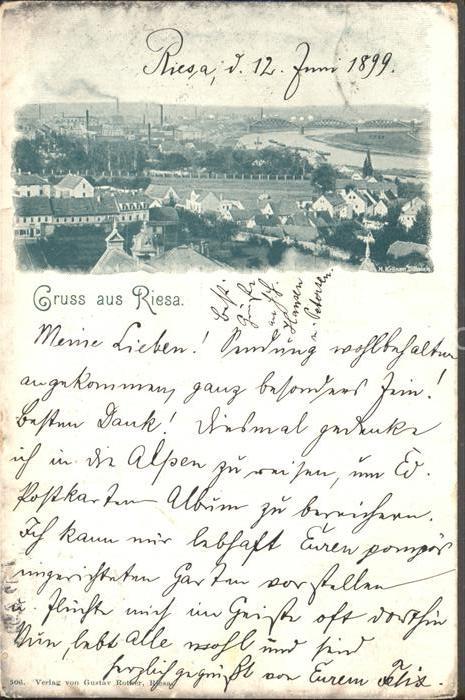 Riesa, d. 12. Juni 1899.
Gruss aus Riesa.
Best.
Grüße
an
Hansen
u. Petersen.
Meine Lieben! Sendung wohlbehalten
angekommen, ganz besonders fein!
Besten Dank! Diesmal gedenke
ich in die Alpen zu reisen, um Ed.
Postkarten Album zu bereichern.
Ich kann mir lebhaft Euren pompös
eingerichteten Garten vorstellen
u. flüchte mich im Geiste oft dorthin
Nun, lebt alle wohl und seid
herzlich gegrüßt von Eurem Felix.
506. Verlag von Gustav Rother, Riesa.